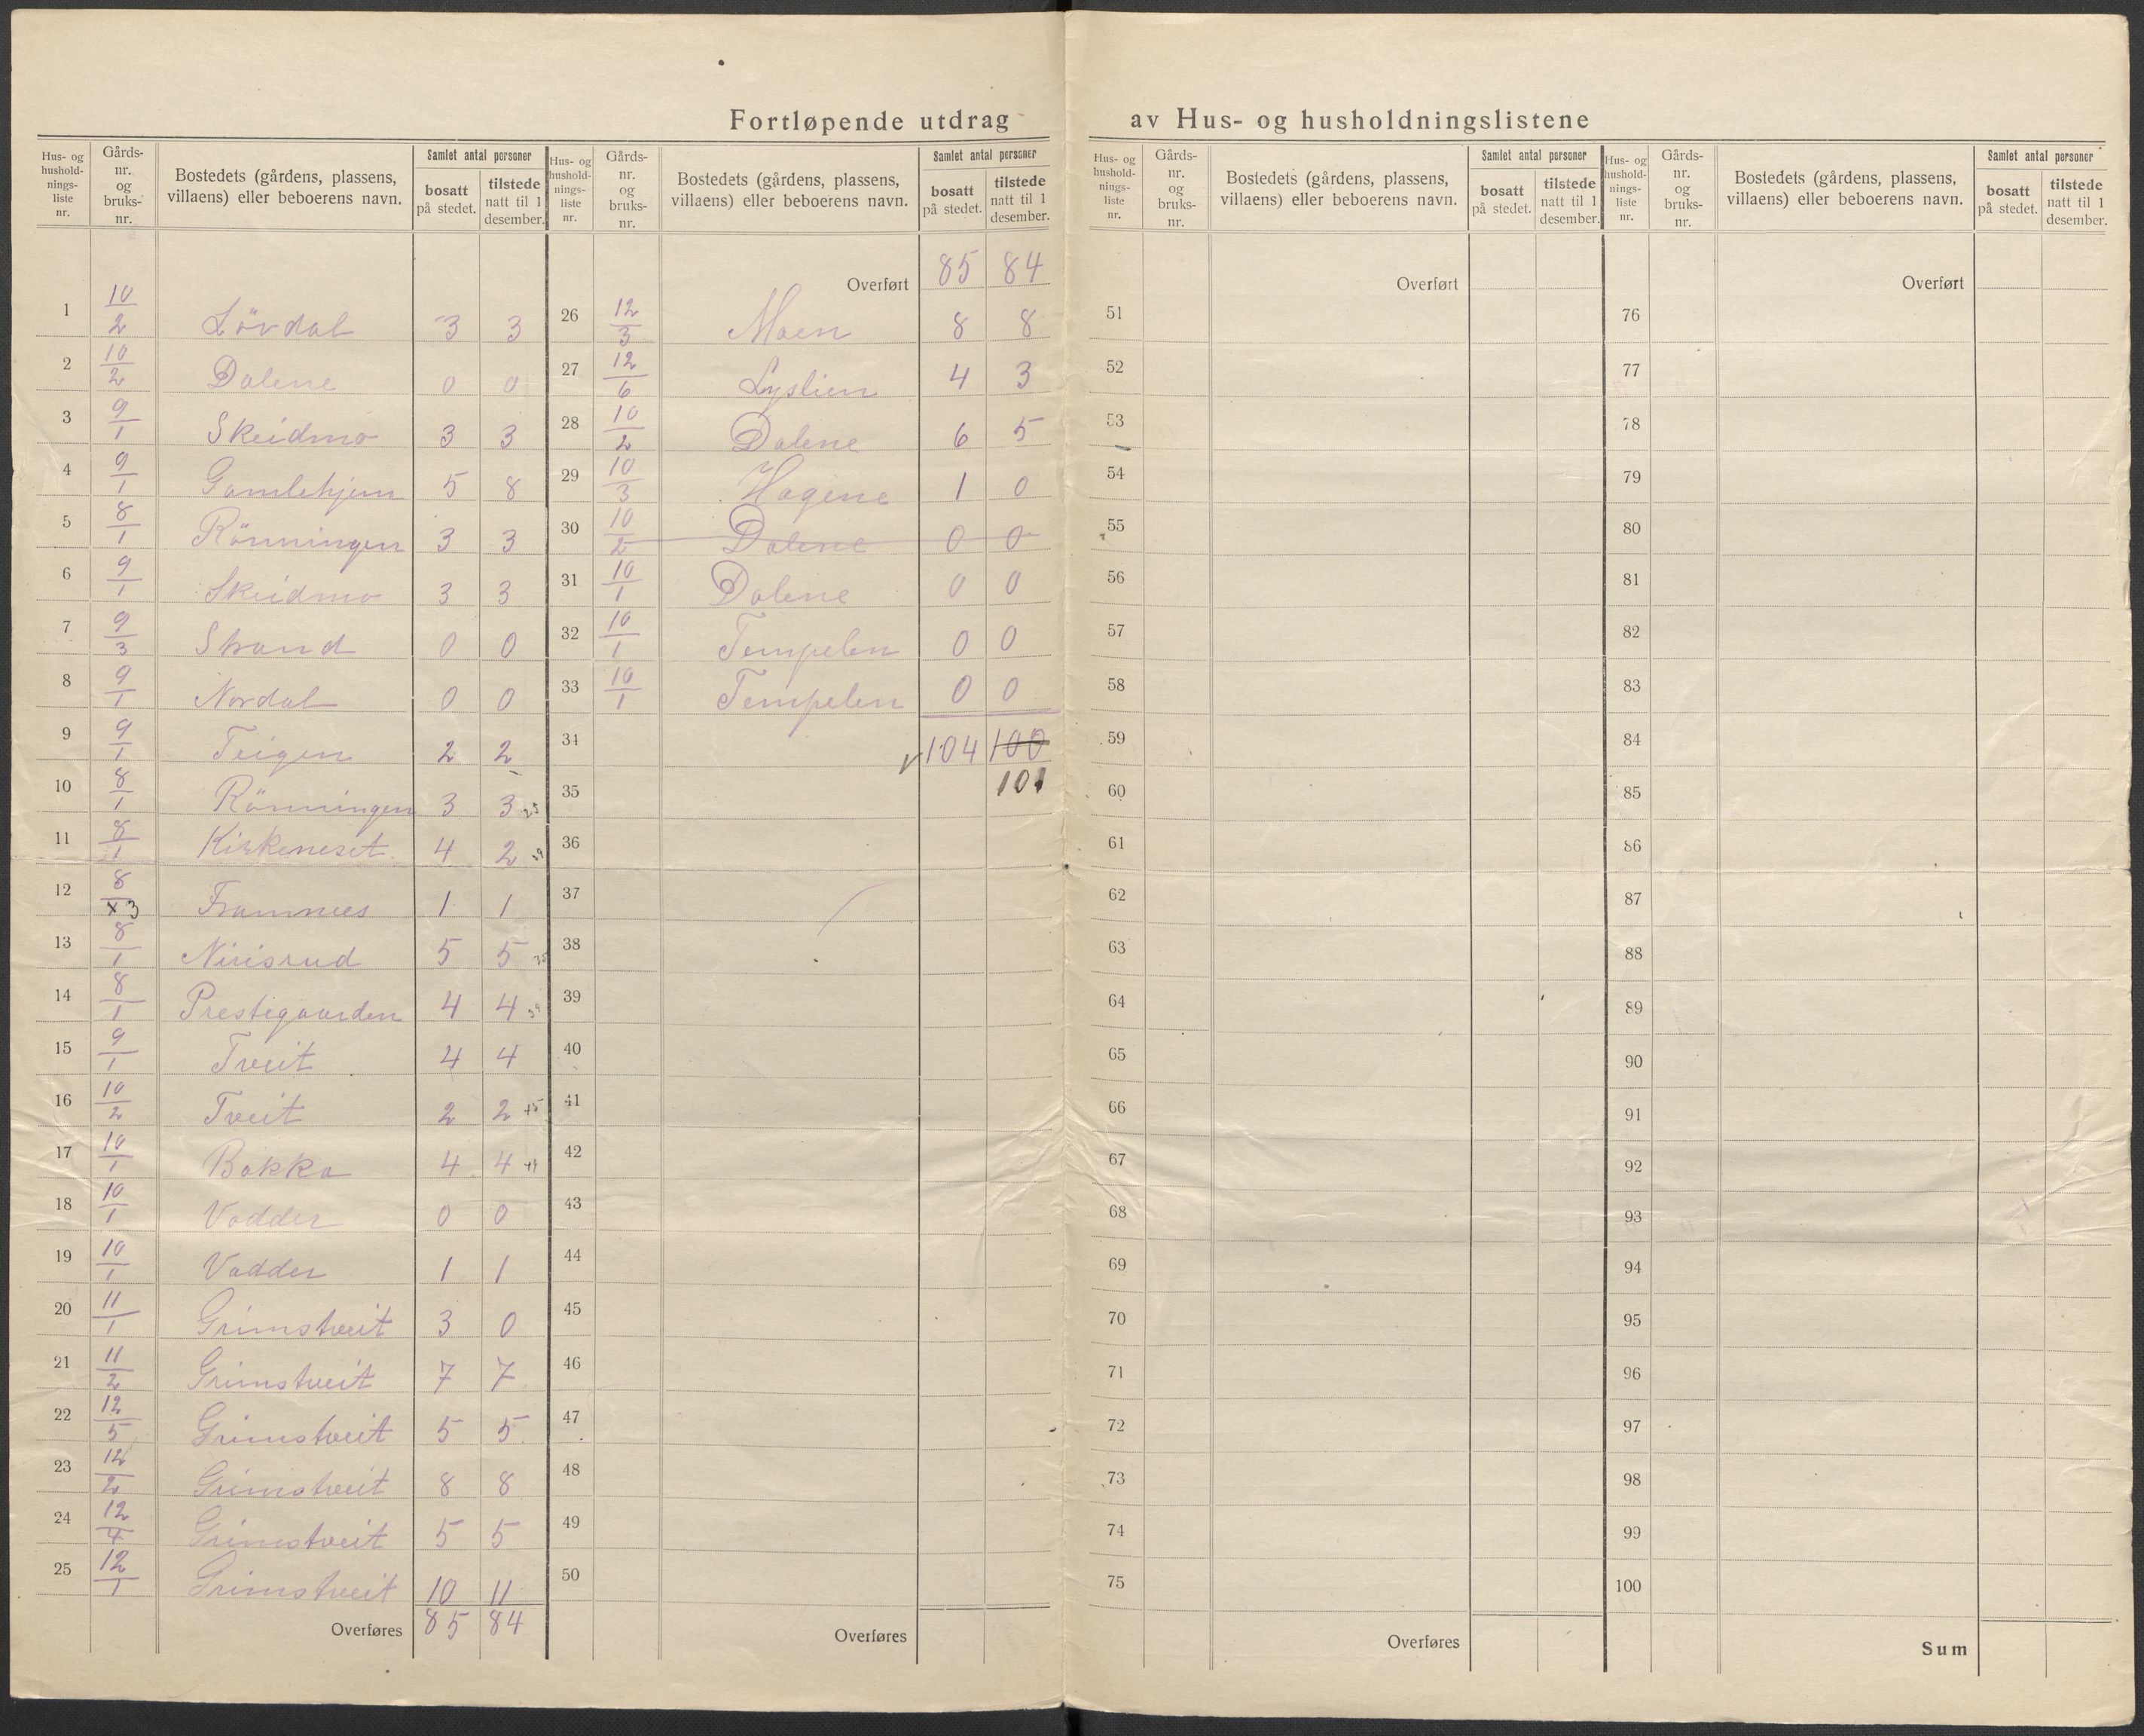 Fortløpende utdrag av Hus- og husholdningslistene
Hus- og hushold-nings-liste nr. | Gårds-nr. og bruks-nr. | Bostedets (gårdens, plassens, villaens) eller beboerens navn. | Samlet antal personer | bosatt på stedet. | tilstede natt til 1 desember.
1 10/2 Lövdal 3 3
2 10/2 Dalene 0 0
3 9/1 Skeidmo 3 3
4 9/1 Gamlehjem 5 8
5 8/1 Rönningen 3 3
6 9/1 Skeidmo 3 3
7 9/3 Strand 0 0
8 9/1 Nordal 0 0
9 9/1 Teigen 2 2
10 8/1 Rönningen 3 3
11 8/1 Kirkeneset 4 2
12 8/3 Framnes 1 1
13 8/1 Nirisrud 5 5
14 8/1 Prestigaarden 4 4
15 9/1 Tveit 4 4
16 10/2 Tveit 2 2
17 10/1 Bakka 4 4
18 10/1 Vadder 0 0
19 10/1 Vadder 1 1
20 11/1 Grimstveit 3 0
21 11/2 Grimstveit 7 7
22 12/5 Grimstveit 5 5
23 12/2 Grimstveit 8 8
24 12/4 Grimstveit 5 5
25 12/1 Grimstveit 10 11
Overføres 85 84
Hus- og hushold-nings-liste nr. | Gårds-nr. og bruks-nr. | Bostedets (gårdens, plassens, villaens) eller beboerens navn. | Samlet antal personer | bosatt på stedet. | tilstede natt til 1 desember.
Overført 85 84
26 12/3 Moen 8 8
27 12/6 Lyslien 4 3
28 10/2 Dalene 6 5
29 10/3 Hagene 1 0
30 10/2 Dalene 0 0
31 10/1 Dalene 0 0
32 10/1 Tempelen 0 0
33 10/1 Tempelen 0 0
34 104 100
35 101
36
37
38
39
40
41
42
43
44
45
46
47
48
49
50
Overføres
Hus- og hushold-nings-liste nr. | Gårds-nr. og bruks-nr. | Bostedets (gårdens, plassens, villaens) eller beboerens navn. | Samlet antal personer | bosatt på stedet. | tilstede natt til 1 desember.
Overført
51
52
53
54
55
56
57
58
59
60
61
62
63
64
65
66
67
68
69
70
71
72
73
74
75
Overføres
Hus- og hushold-nings-liste nr. | Gårds-nr. og bruks-nr. | Bostedets (gårdens, plassens, villaens) eller beboerens navn. | Samlet antal personer | bosatt på stedet. | tilstede natt til 1 desember.
Overført
76
77
78
79
80
81
82
83
84
85
86
87
88
89
90
91
92
93
94
95
96
97
98
99
100
Sum